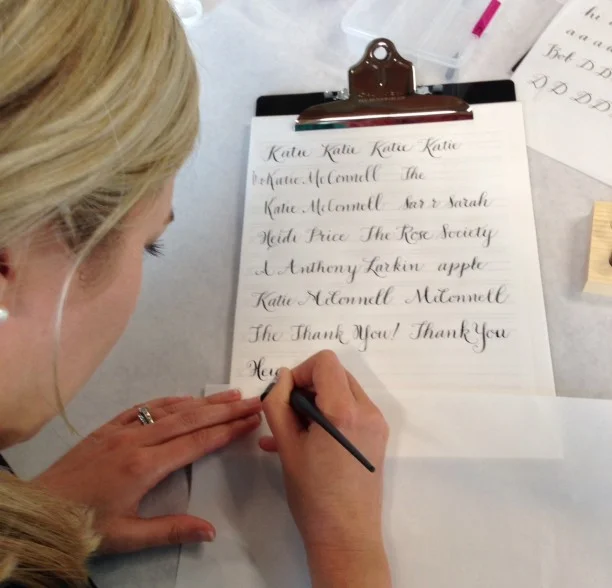 Katie Katie Katie Katie
Katie McConnell The
Katie McConnell Sar & Sarah
Heidi Price The Rose Society
A Anthony Larkin apple
Katie McConnell McConnell
The Thank You! Thank You
Hei
hi
a a a a
Bob D D
D D D D